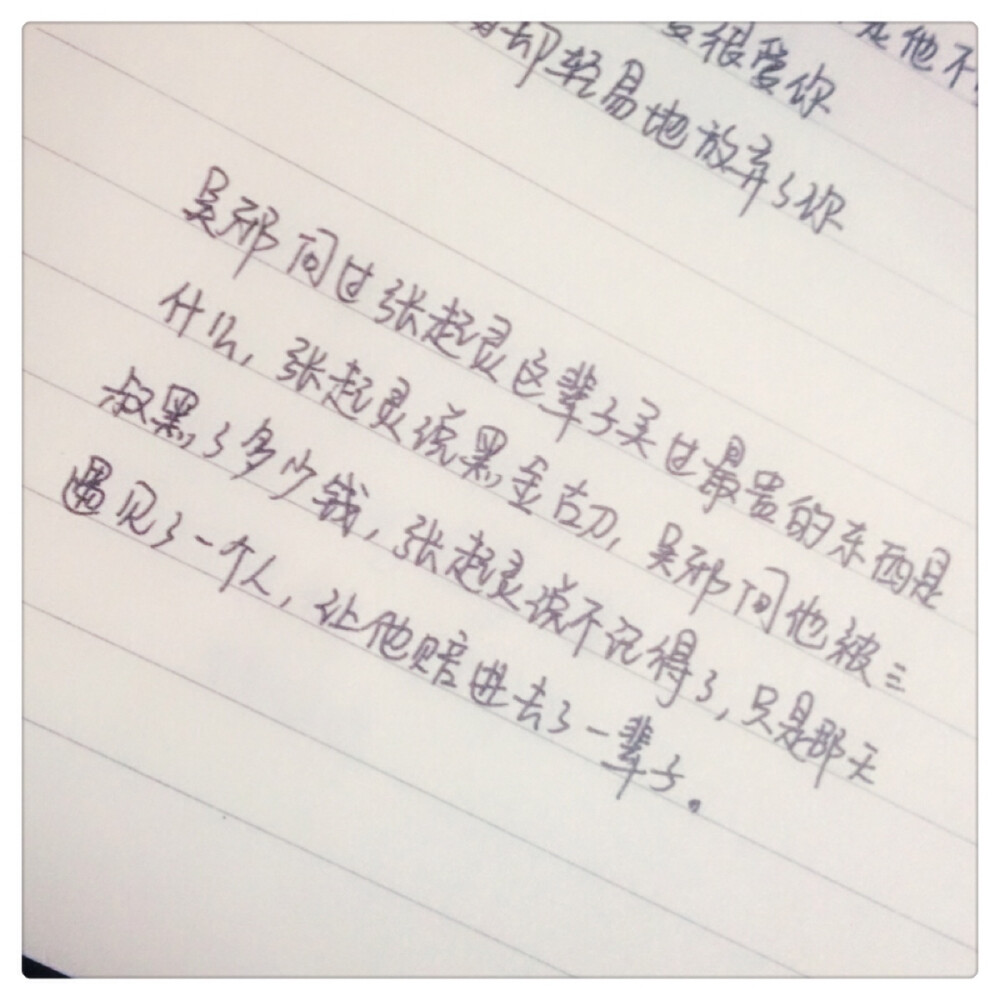 是他不
很爱你
却轻易地放弃了你
吴邪问过张起灵这辈子买过最贵的东西是
什么，张起灵说黑金古刀，吴邪问他被三
叔黑了多少钱，张起灵说不记得了，只是那天
遇见了一个人，让他赔进去了一辈子。